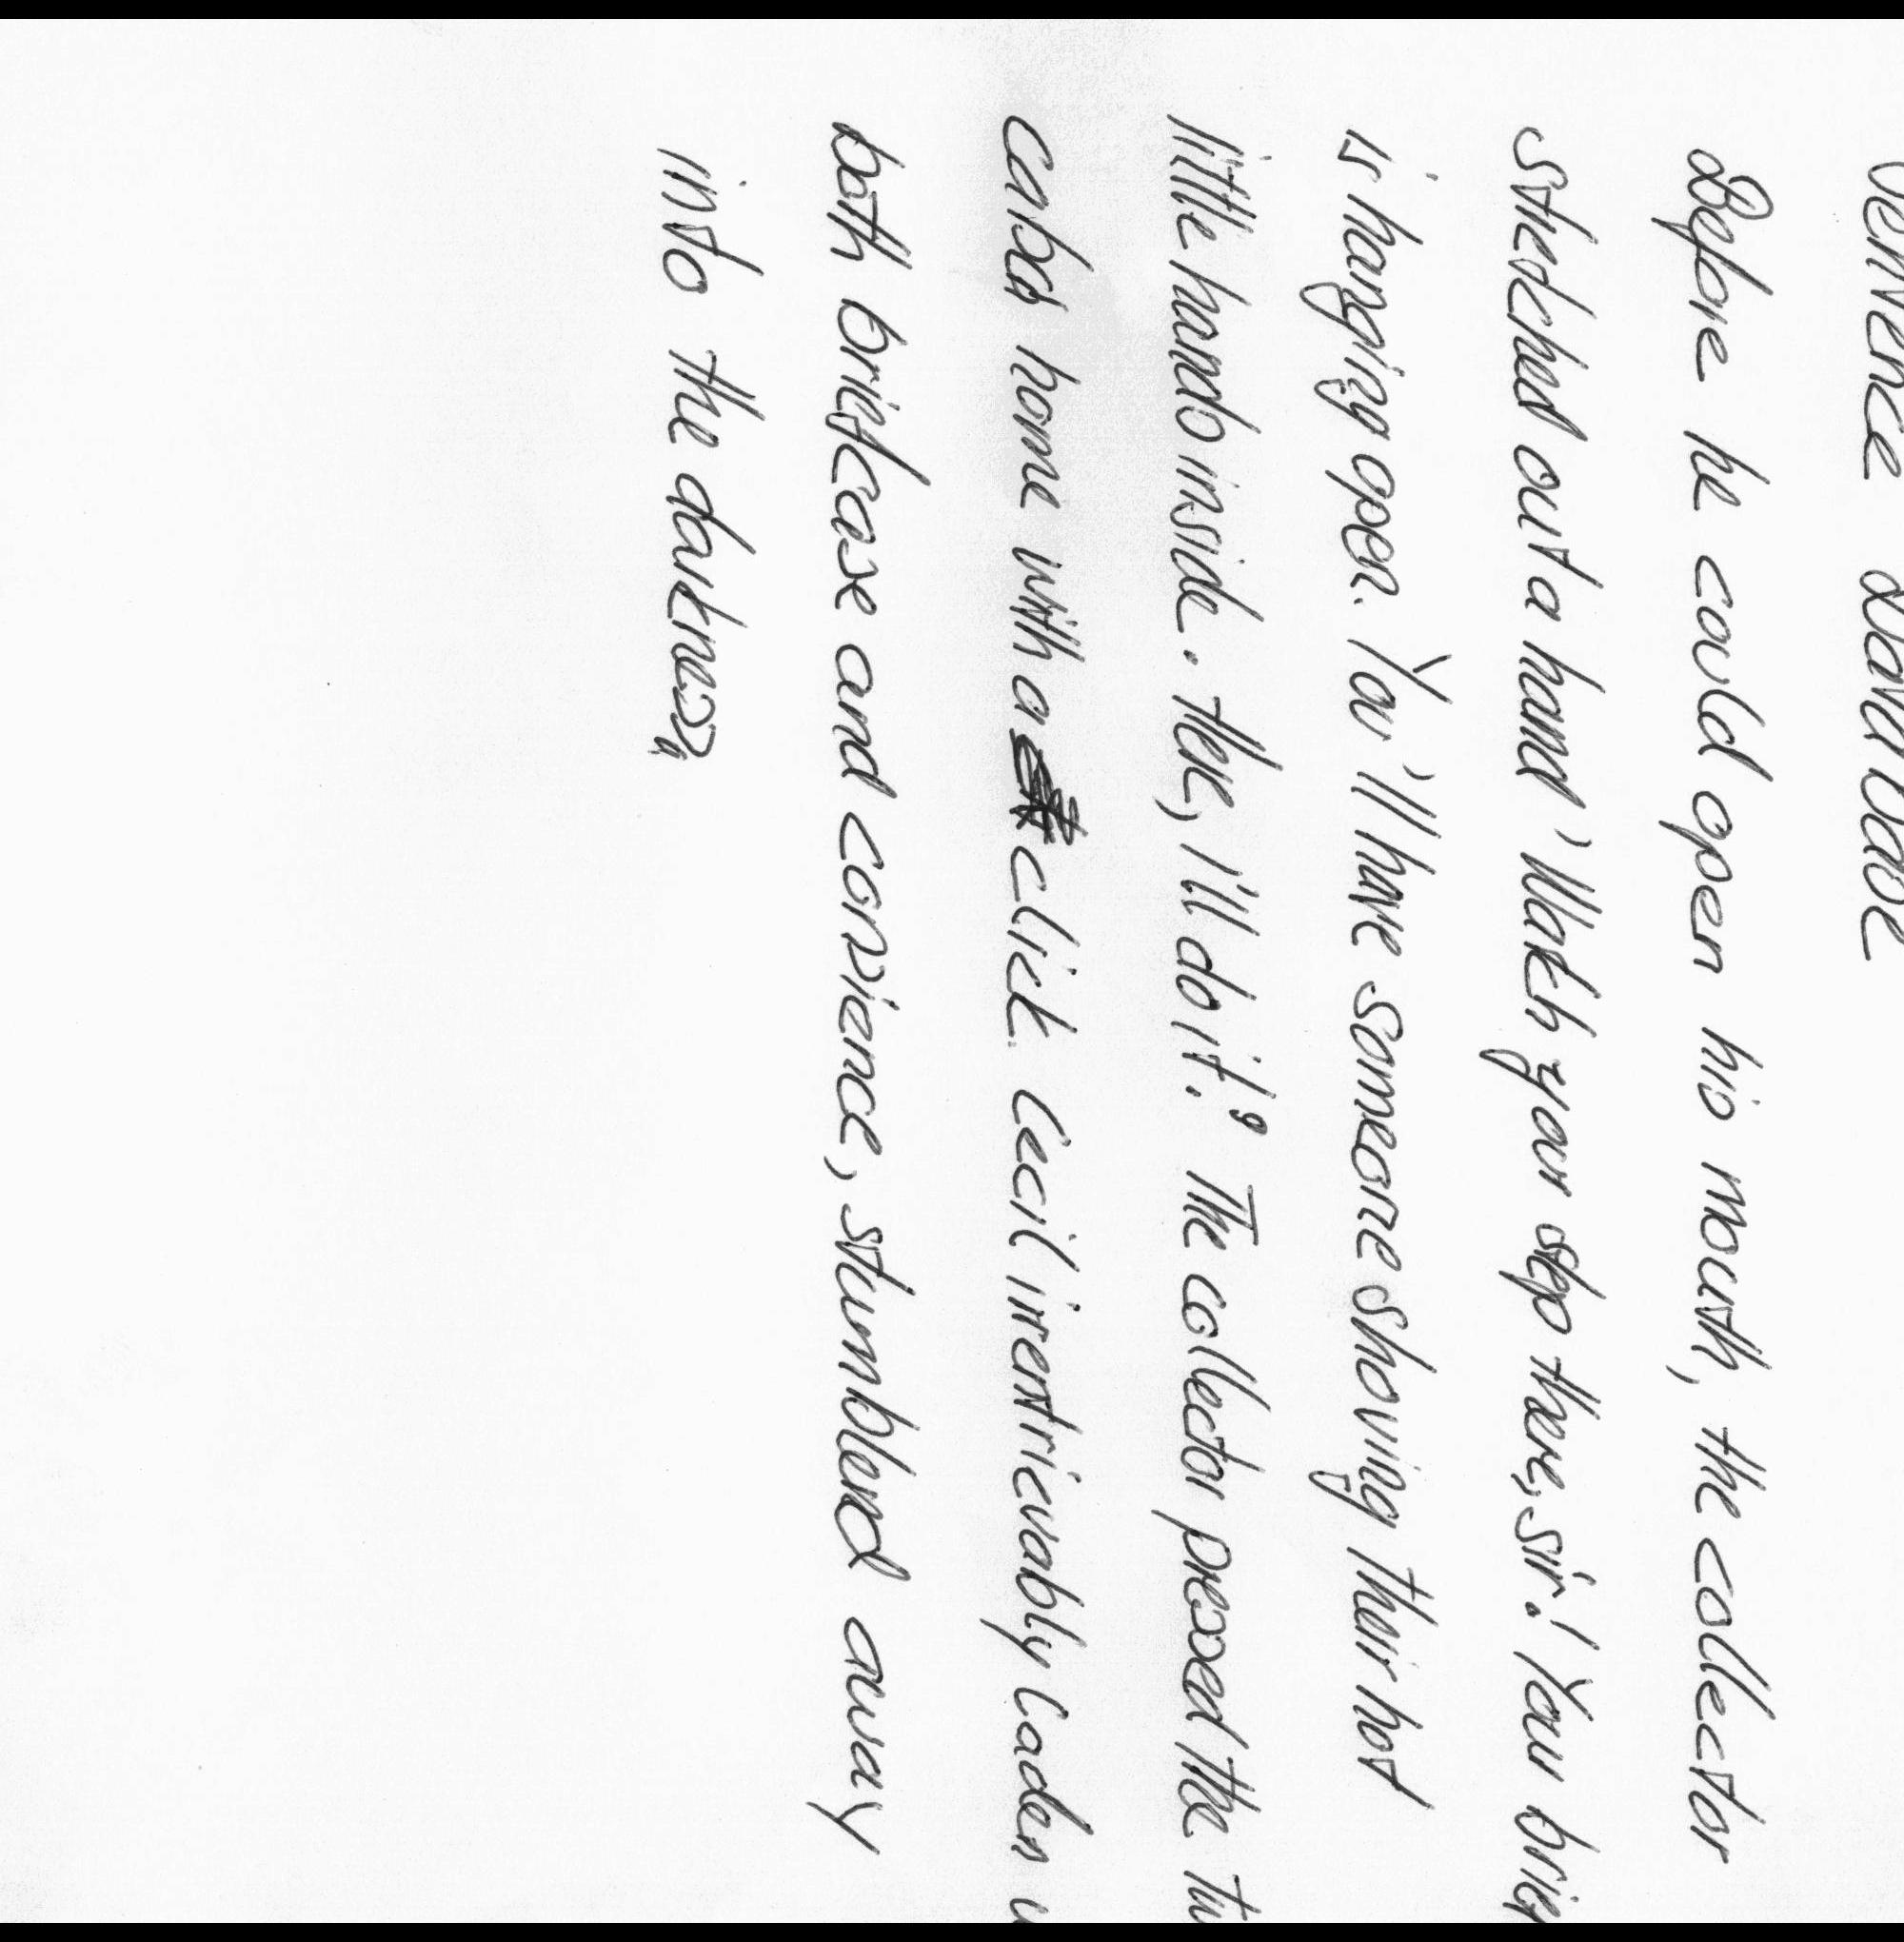 Before he could open his mouth, the collector
stretched out a hand 'Watch your step there, sir! Your brie
is hanging open. You'll have someone shoving their hot
little hands inside. Here, I'll do it!" The collector pressed the
home with a click. Cecil laden
both briefcase and convience, stumblend away
into the darkness"